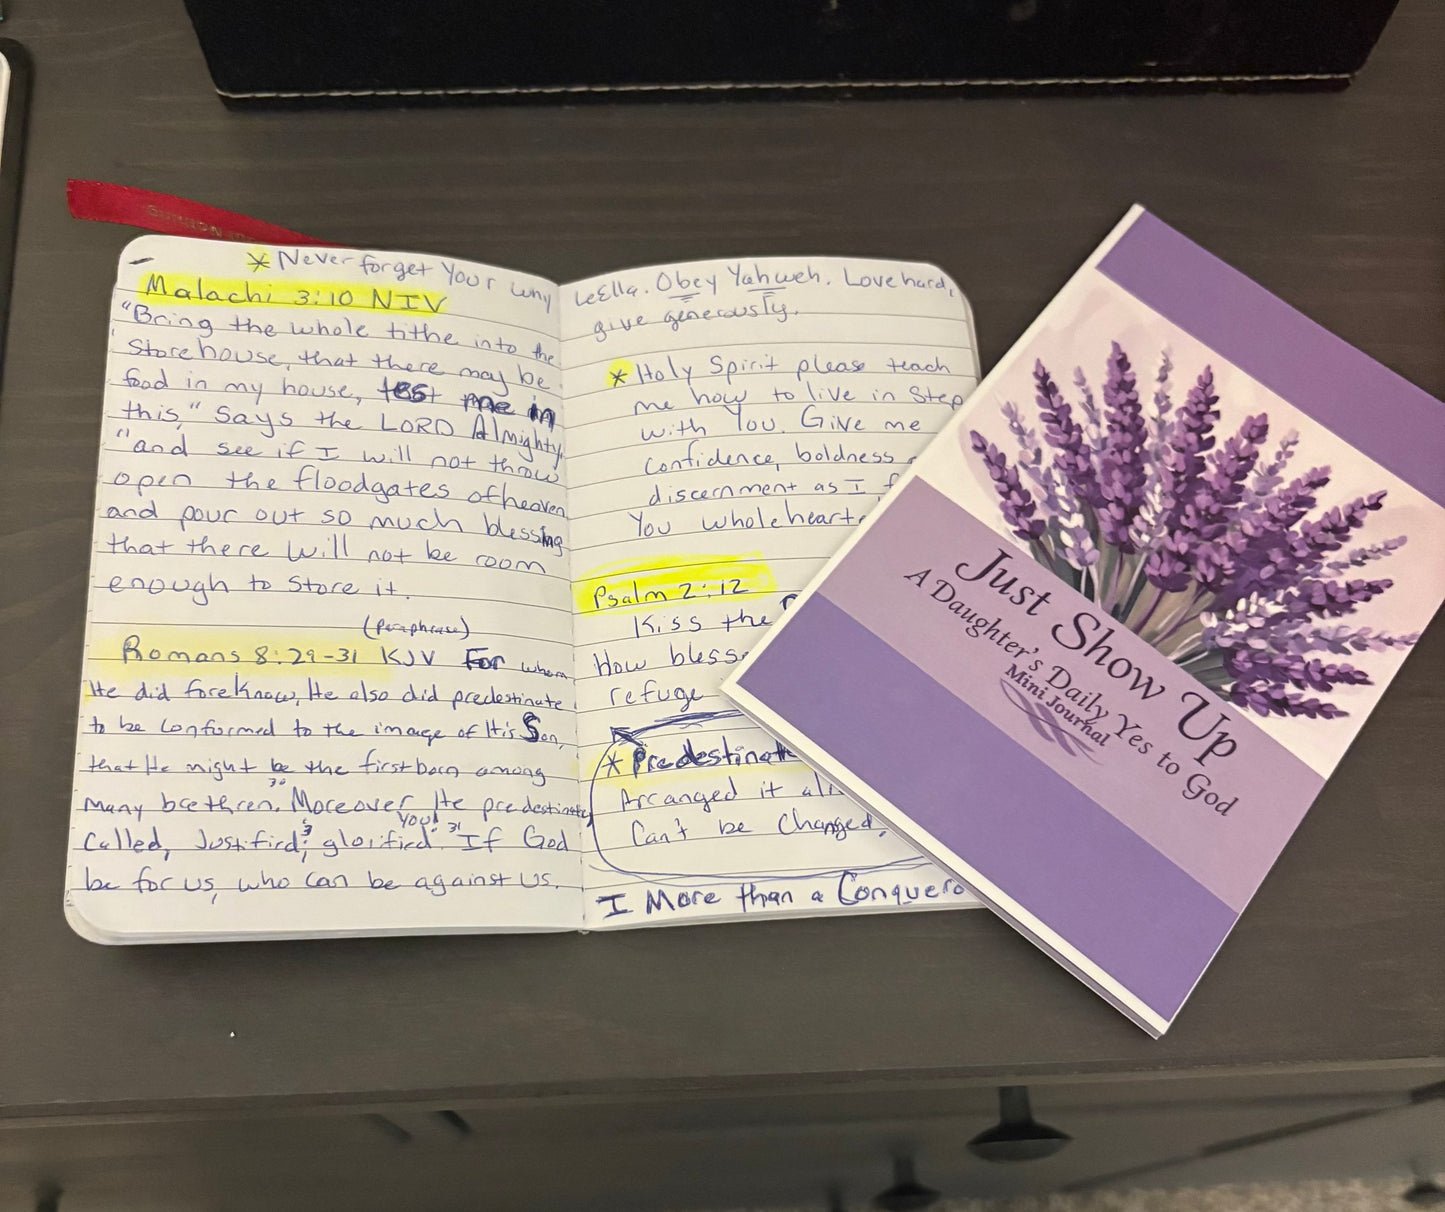 * Never forget Your Why
Malachi 3:10 NIV
"Bring the whole tithe into the
Storehouse, that there may be
food in my house, test me in
this," Says the LORD Almighty,
"and see if I will not throw
open the floodgates of heaven
and pour out so much blessing
that there will not be room
enough to store it.
(Paraphrase)
Romans 8:29-31 KJV For whom
He did foreknow, He also did predestinate
to be conformed to the image of His Son,
that He might be the firstborn among
30
many brethren. Moreover He predestinate,
you! 31
Called, Justified, glorified. If God
be for us, who can be against us.
LeElla. Obey Yahweh. Love hard,
give generously.
* Holy Spirit please teach
me how to live in Step
with You. Give me
confidence, boldness
discernment as I
You wholeheart
Psalm 2:12
Kiss the
How bless
refuge
* Predestinat
Arranged it
Can't be changed.
I More than a Conquero
Just Show Up
A Daughter's Daily Yes to God
Mini Journal